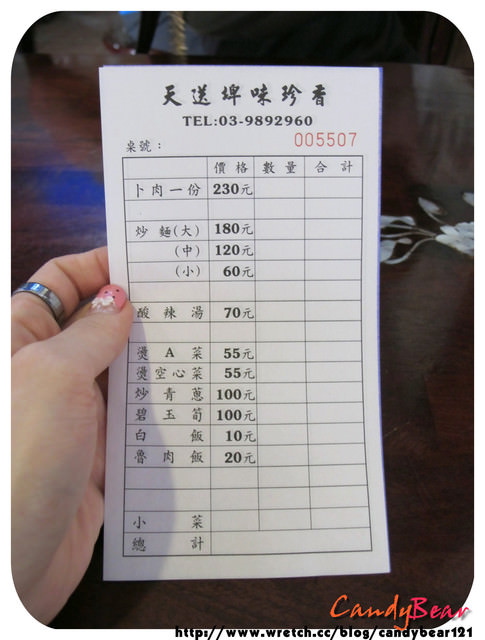 CandyBear
天送埤味珍香
TEL:03-9892960
桌號： 005507
價格 數量 合計
卜肉一份 230元
炒麵(大) 180元
(中) 120元
(小) 60元
酸辣湯 70元
燙A菜 55元
燙空心菜 55元
炒青蔥 100元
碧玉筍 100元
白飯 10元
魯肉飯 20元
小菜
總計
CandyBear
http://www.wretch.cc/blog/candybear121